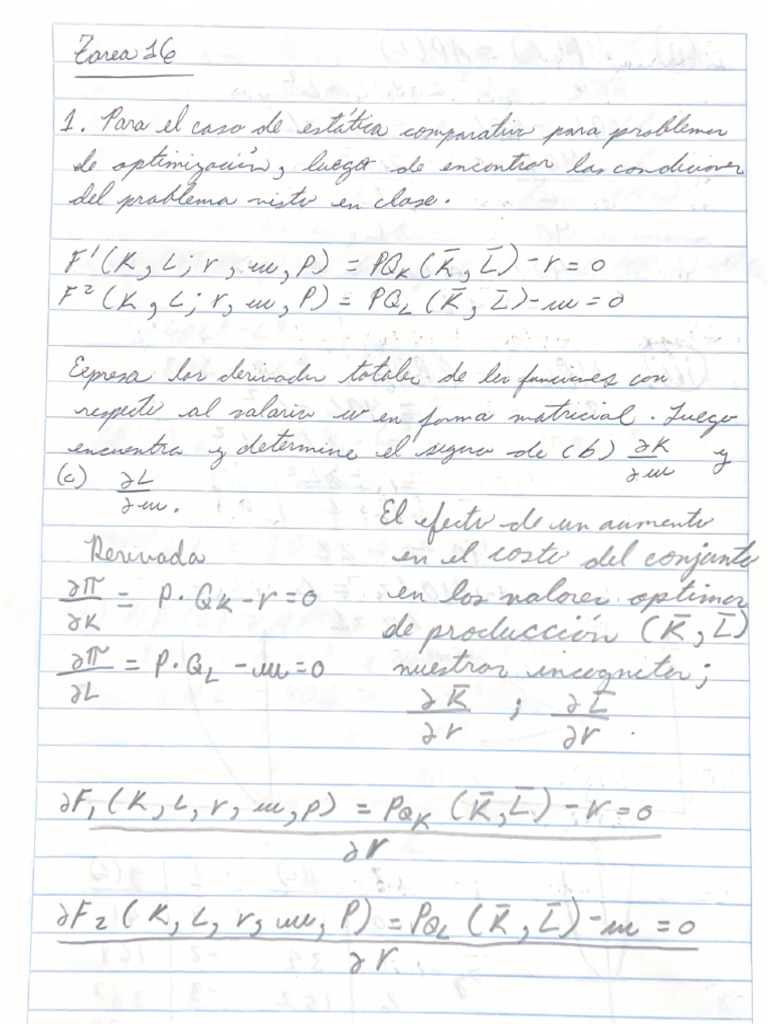 Tarea 16
1. Para el caso de estática comparativa para problemas
de optimización, luego de encontrar las condiciones
del problema visto en clase.
F¹(K, L; r, w, P) = PQ_K (K̄, L̄) - r = 0
F²(K, L; r, w, P) = PQ_L (K̄, L̄) - w = 0
Expresa las derivadas totales de las funciones con
respecto al salario w en forma matricial. Luego
encuentra y determine el signo de (b) ∂K/∂w y
(c) ∂L/∂w.
Derivada
∂π/∂K = P · Q_K - r = 0
∂π/∂L = P · Q_L - w = 0
El efecto de un aumento
en el costo del conjunto
en los valores optimos
de producción (K̄, L̄)
nuestras incognitas;
∂K̄/∂r ; ∂L̄/∂r .
∂F₁(K, L, r, w, P) = PQ_K (K̄, L̄) - r = 0
∂r
∂F₂(K, L, r, w, P) = PQ_L (K̄, L̄) - w = 0
∂r